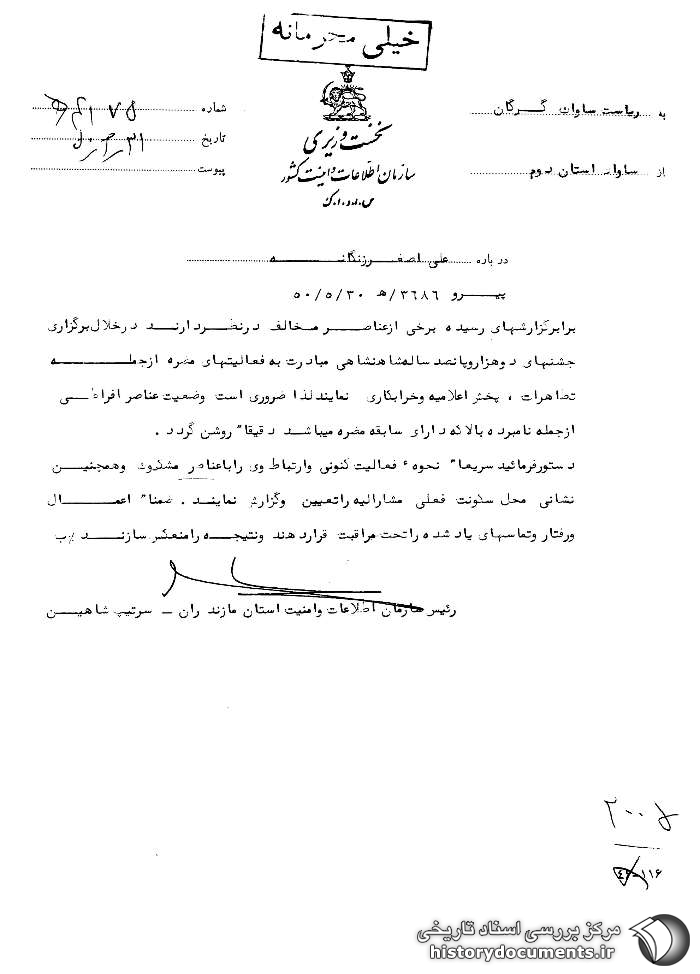 خیلی محرمانه
به ریاست ساواک گرگان
از ساواک استان دوم
نخست وزیری
سازمان اطلاعات و امنیت کشور
س.ا.و.ا.ک
شماره
تاریخ
پیوست
درباره علی اصغر زنگانه
پیرو ۳۶۸۶/ه‍ ۵۰/۵/۳۰
برابر گزارشهای رسیده برخی از عناصر مخالف در نظر دارند در خلال برگزاری
جشنهای دو هزار و پانصد ساله شاهنشاهی مبادرت به فعالیتهای مضره از جمله
تظاهرات ، پخش اعلامیه و خرابکاری نمایند لذا ضروری است وضعیت عناصر افراطی
از جمله نامبرده بالا که دارای سابقه مضره میباشد دقیقا" روشن گردد .
دستور فرمائید سریعا" نحوهٔ فعالیت کنونی و ارتباط وی را با عناصر مشکوک و همچنین
نشانی محل سکونت فعلی مشارالیه را تعیین و گزارش نمایند . ضمنا" اعمال
و رفتار و تماسهای یاد شده را تحت مراقبت قرار دهند و نتیجه را منعکس سازند
رئیس سازمان اطلاعات و امنیت استان مازندران – سرتیپ شاهین
مرکز بررسی اسناد تاریخی
historydocuments.ir